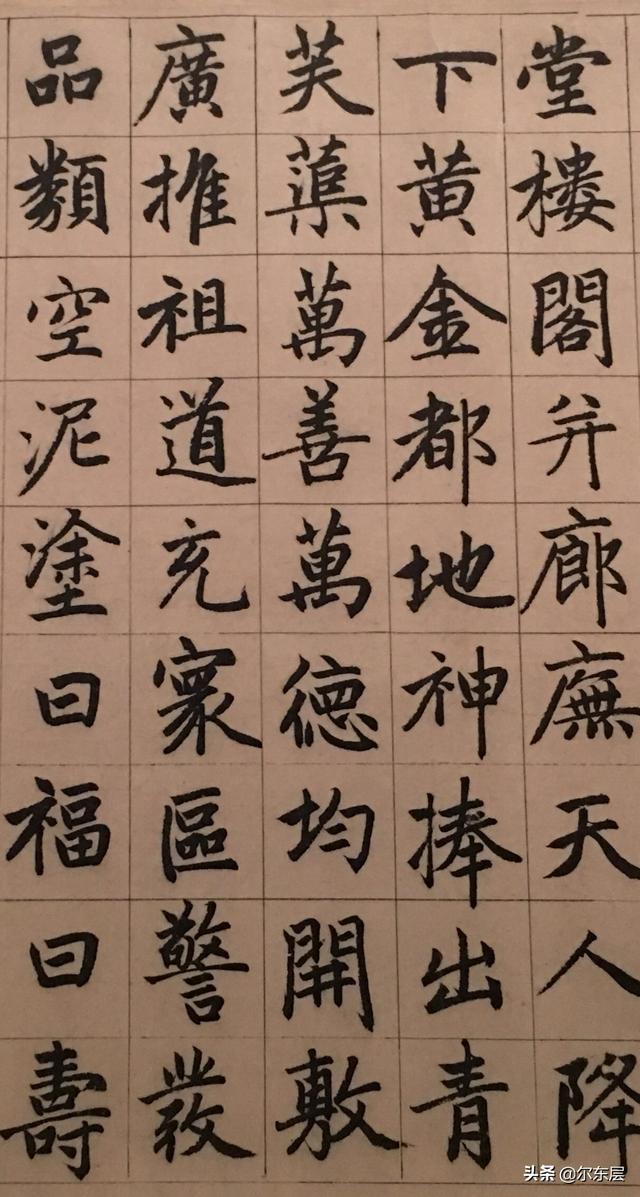 堂樓閣并廊廡天人降
下黄金都地神捧出青
芙蕖萬善萬德均開敷
廣推祖道充寰區警發
品類空泥塗曰福曰壽
头条 @尔东层